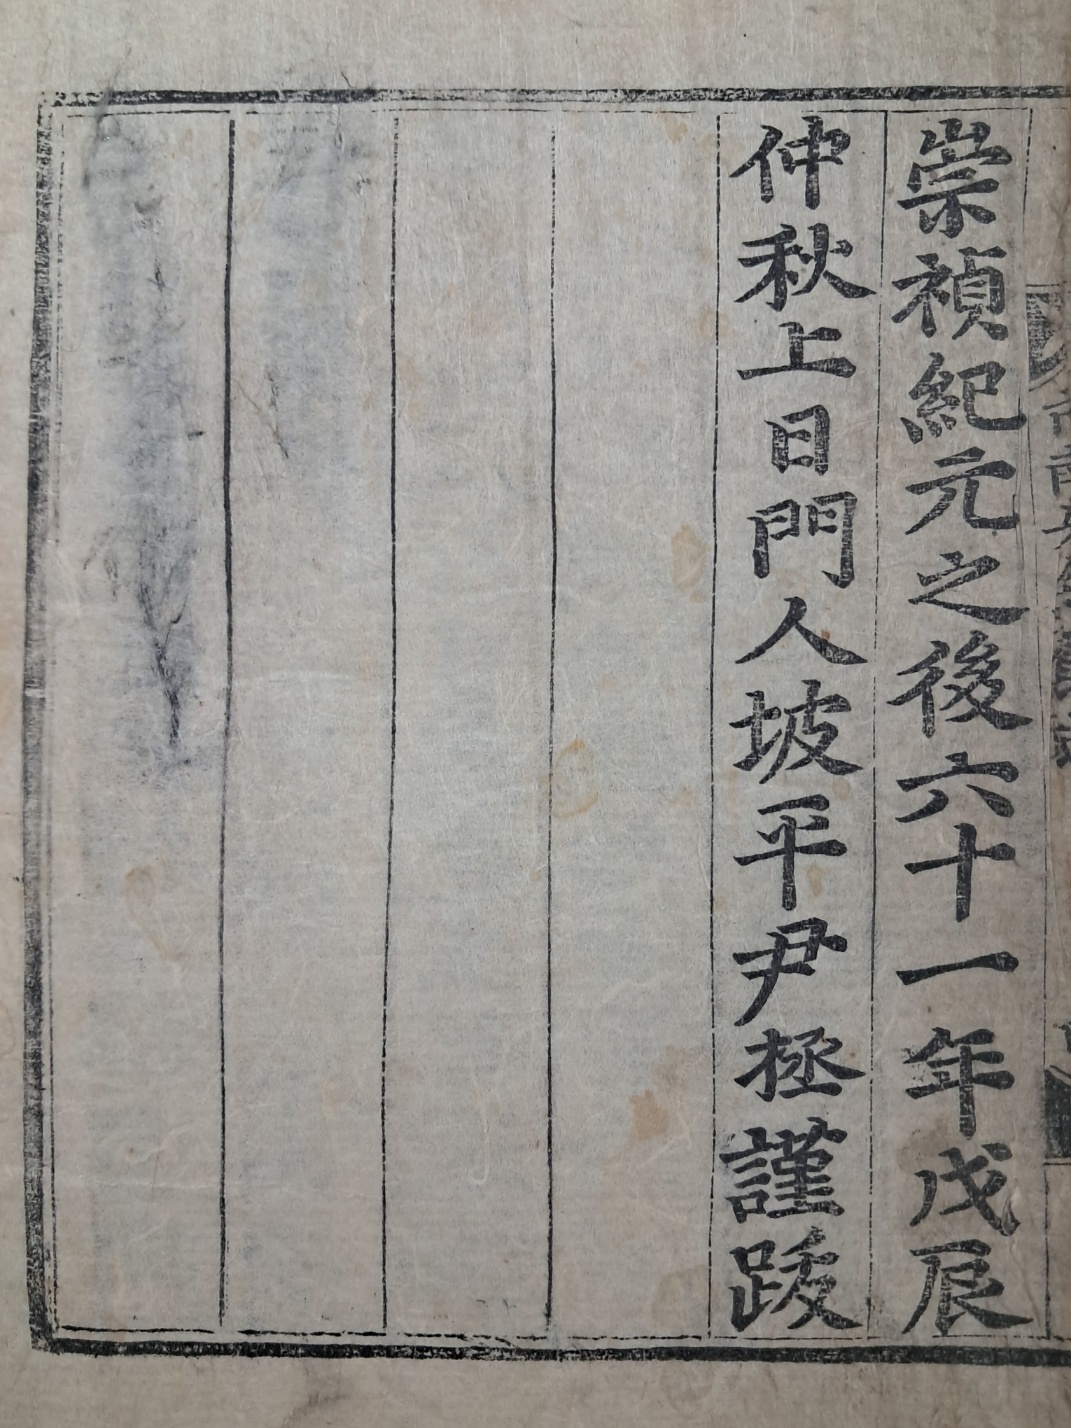 崇禎紀元之後六十一年戊辰
仲秋上日門人坡平尹拯謹跋